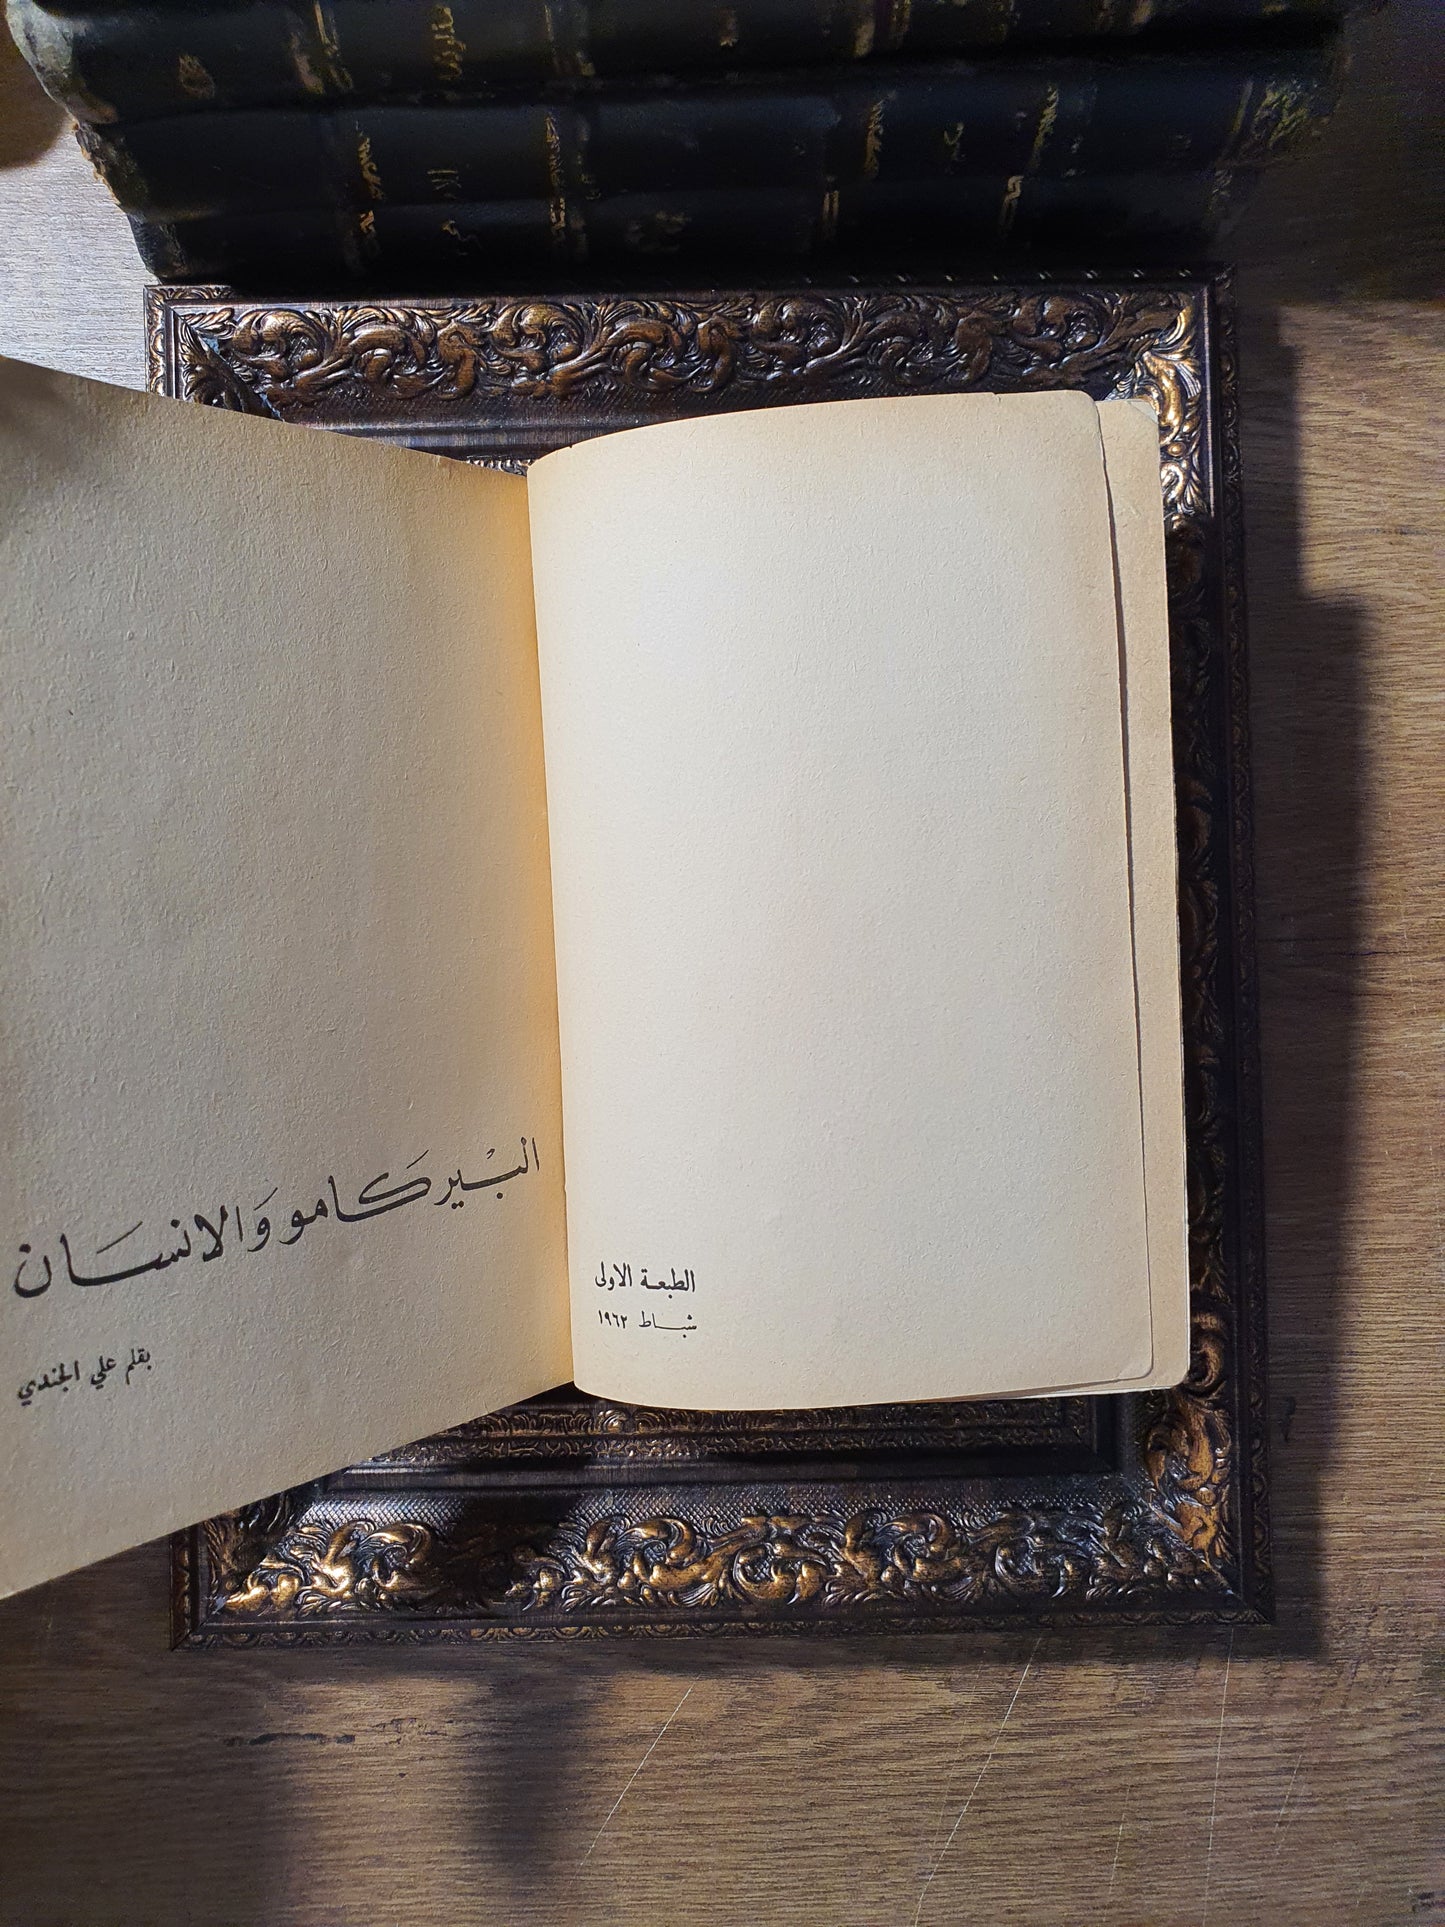 الطبعة الاولى
شباط ١٩٦٢
البير كامو وَالانسَان
بقلم علي الجندي